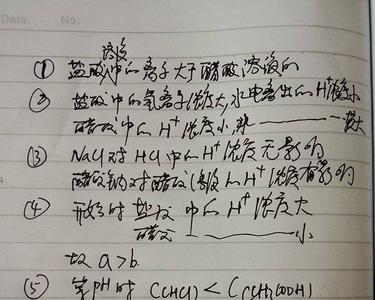 Date. No.
溶液
① 盐酸中的离子大于醋酸溶液的
② 盐酸中的氢离子浓度大,水电离出的H⁺浓度小
醋酸中的H⁺浓度小,
③ NaCl对HCl中的H⁺浓度无影响
醋酸钠对醋酸溶液的H⁺浓度有影响
④ 开始时盐酸中的H⁺浓度大
醋酸 小
故a>b.
⑤ 等pH时 C(HCl) < C(CH₃COOH)